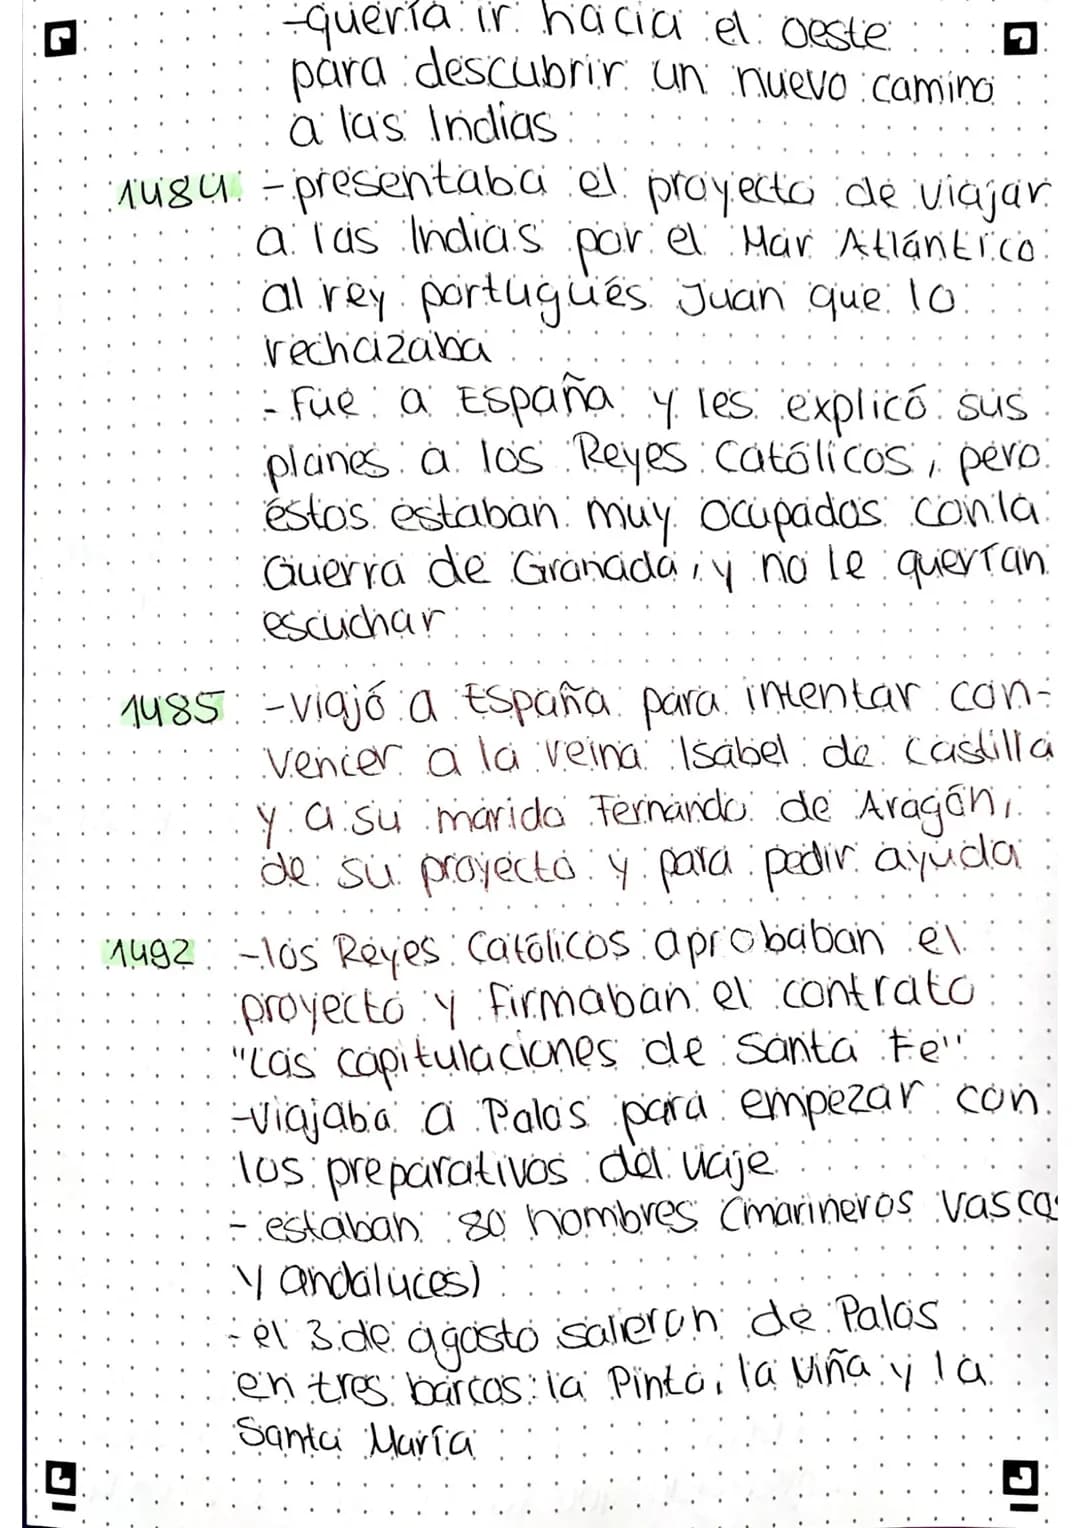 -quería ir hacia el oeste
para descubrir un nuevo camino
a las Indias
1484: -presentaba el proyecto de viajar
a las Indias por el Mar Atlántico
al rey portugués Juan que lo
rechazaba
- Fue a España y les explicó sus
planes a los Reyes Católicos, pero
éstos estaban muy ocupados con la
Guerra de Granada, y no le querían
escuchar
1485 -viajó a España para intentar con-
vencer a la reina Isabel de Castilla
y a su marido Fernando de Aragón,
de su proyecto y para pedir ayuda
1492 -los Reyes Católicos aprobaban el
proyecto y firmaban el contrato
"Las capitulaciones de Santa Fe"
-viajaba a Palos para empezar con
los preparativos del viaje
- estaban 80 hombres (marineros vascos
y andaluces)
- el 3 de agosto salieron de Palos
en tres barcos: la Pinta, la Niña y la
Santa María